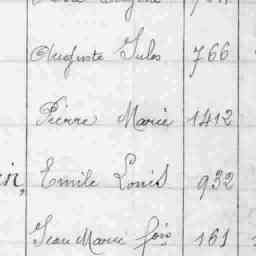 Auguste Jules 766
Pierre Marie 1412
Emile Louis 932
Jean Marie fois 161